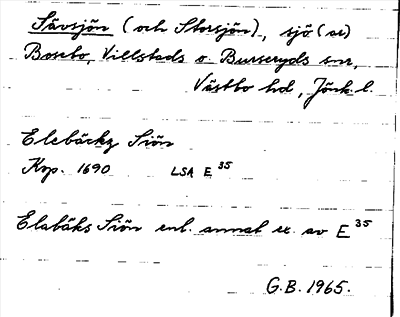 Sävsjön (och Storsjön), sjö (ar)
Bosebo, Villstads o. Burseryds snr,
Västbo hd, Jönk. l.
Elebäckz Siön
Kop. 1690 LSA E 35
Elabäks Siön enl. annat ex. av E 35
G.B. 1965.